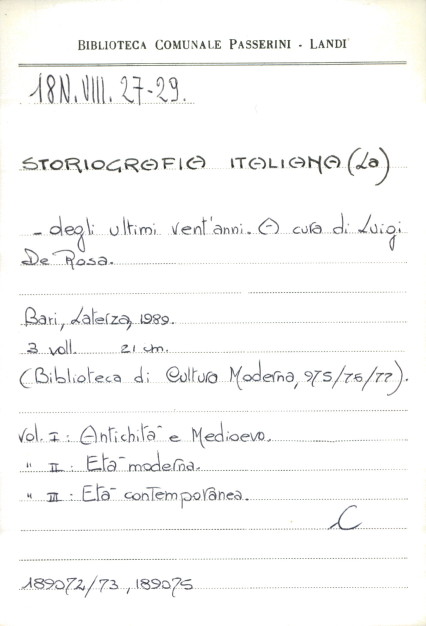 BIBLIOTECA COMUNALE PASSERINI - LANDI
18N.VIII. 27-29.
STORIOGRAFIA ITALIANA (La)
- degli ultimi vent'anni. A cura di Luigi
De Rosa.
Bari, Laterza, 1989.
3 voll. 21 cm.
(Biblioteca di Cultura Moderna, 975/76/77).
Vol. I : Antichità e Medioevo.
" II : Età moderna.
" III : Età contemporanea.
C
189072/73, 189075